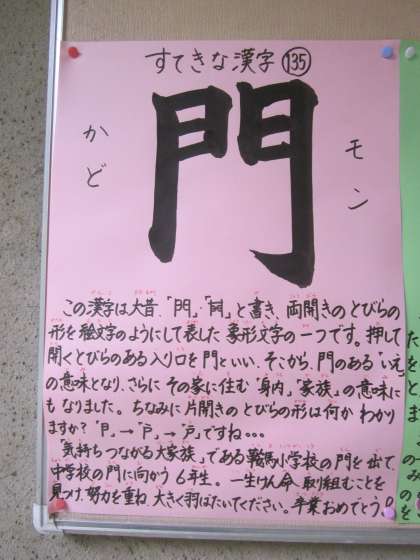 すてきな漢字 135
門
かど
モン
この漢字は大昔、「門」、「門」と書き、両開きのとびらの
形を絵文字のようにして表した象形文字の一つです。押して
開くとびらのある入り口を門といい、そこから、門のある「いえ」
の意味となり、さらにその家に住む「身内」「家族」の意味に
もなりました。ちなみに片開きのとびらの形は何かわかり
ますか?「戶」→「戸」→「戸」ですね...
「気持ちつながる大家族」である鞍馬小学校の門を出て、
中学校の門に向かう6年生。一生けん命、取り組むことを
見つけ、努力を重ね、大きく羽ばたいてください。卒業おめでとう。